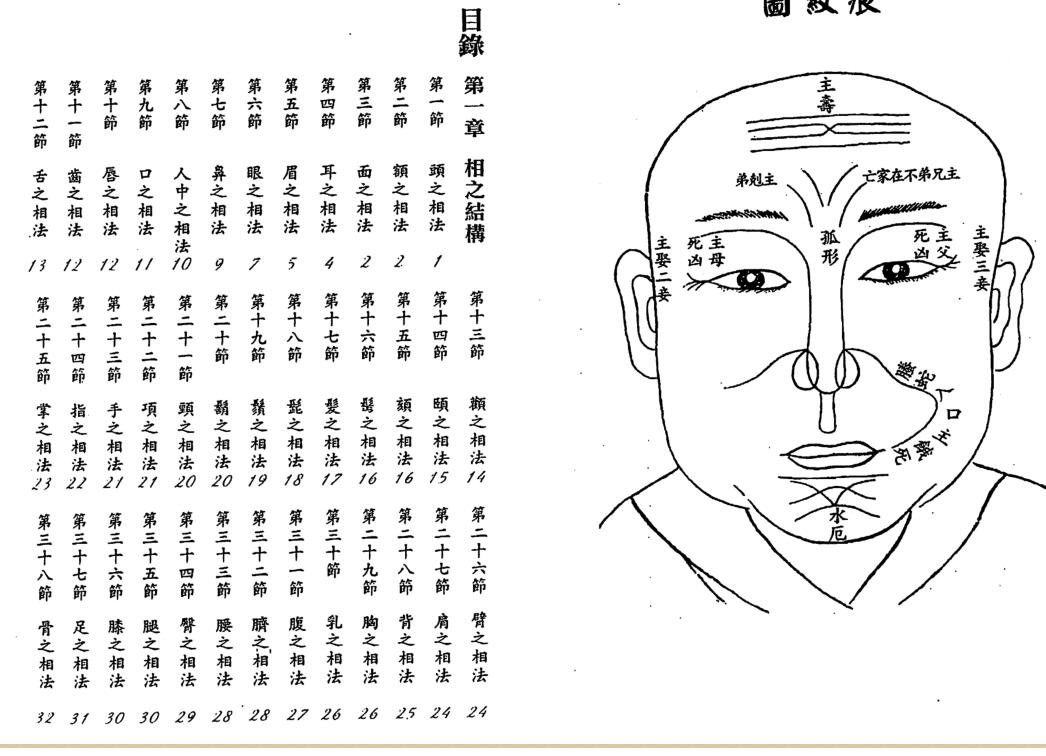 目錄
第一章 相之結構
第一節 頭之相法 1
第二節 額之相法 2
第三節 面之相法 2
第四節 耳之相法 4
第五節 眉之相法 5
第六節 眼之相法 7
第七節 鼻之相法 9
第八節 人中之相法 10
第九節 口之相法 11
第十節 唇之相法 12
第十一節 齒之相法 12
第十二節 舌之相法 13
第十三節 顴之相法 14
第十四節 頤之相法 15
第十五節 頦之相法 16
第十六節 髩之相法 16
第十七節 髮之相法 17
第十八節 髭之相法 18
第十九節 鬚之相法 19
第二十節 鬍之相法 20
第二十一節 頸之相法 20
第二十二節 項之相法 21
第二十三節 手之相法 21
第二十四節 指之相法 22
第二十五節 掌之相法 23
第二十六節 臂之相法 24
第二十七節 肩之相法 24
第二十八節 背之相法 25
第二十九節 胸之相法 26
第三十節 乳之相法 26
第三十一節 腹之相法 27
第三十二節 臍之相法 28
第三十三節 腰之相法 28
第三十四節 臀之相法 29
第三十五節 腿之相法 30
第三十六節 膝之相法 30
第三十七節 足之相法 31
第三十八節 骨之相法 32
痕紋圖
主壽
主兄弟不在家亡
主剋弟
孤形
主娶三妾
主父死凶
主母死凶
主娶二妾
螣蛇入口主餓死
水厄